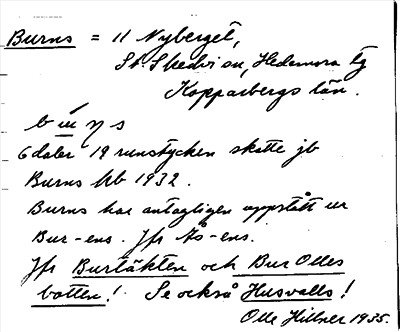 Burns = 11 Nyberget,
St. Skedvi sn, Hedemora tg
Kopparbergs län.
6 daler 19 runstycken skatte jb
Burns Ub 1932.
Burns har antagligen uppstått ur
Bur-ens. Jfr Ås-ens.
Jfr Burtäkten och Bur Olles
botten! Se också Husvalls!
Olle Hillner 1935.